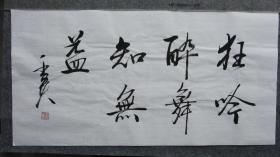 狂吟
醉舞
知無
益